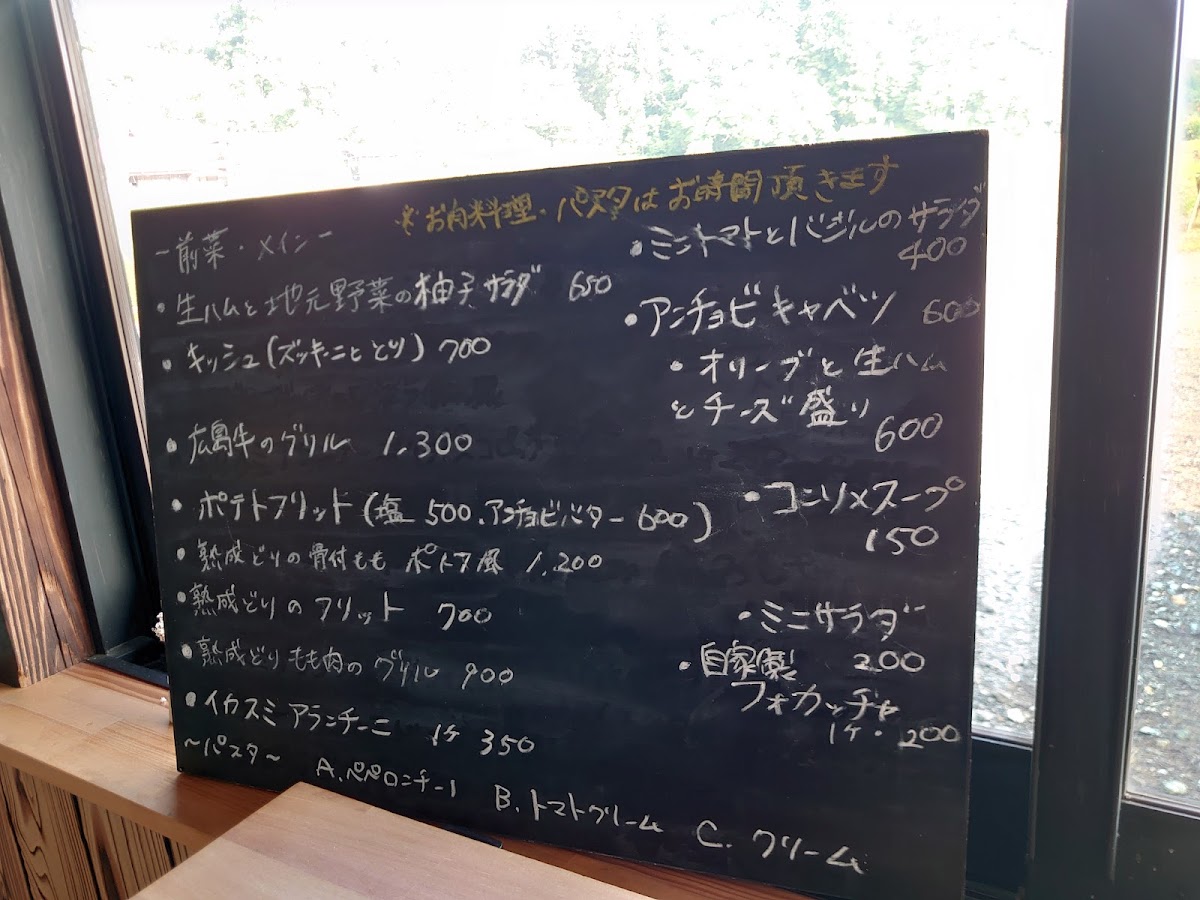 ※お肉料理・パスタはお時間頂きます
~前菜・メイン~
・生ハムと地元野菜の柚子サラダ 650
・キッシュ(ズッキーニととり) 700
・広島牛のグリル 1,300
・ポテトフリット(塩 500、アンチョビバター 600)
・熟成どりの骨付もも ポトフ風 1,200
・熟成どりのフリット 700
・熟成どりもも肉のグリル 900
・イカスミアランチーニ 1ケ 350
~パスタ~ A.ペペロンチーノ B.トマトクリーム C.クリーム
・ミニトマトとバジルのサラダ
400
・アンチョビキャベツ 600
・オリーブと生ハム
とチーズ盛り
600
・コンソメスープ
150
・ミニサラダ
200
・自家製
フォカッチャ
1ケ・200